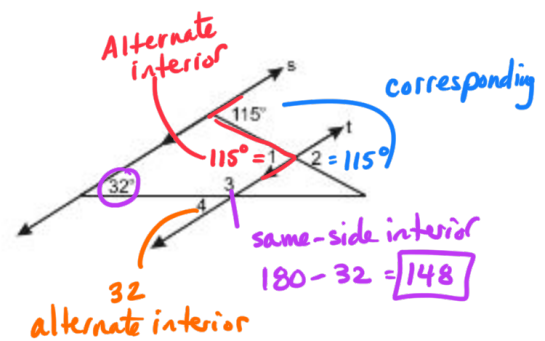 Alternate
interior
s
corresponding
115°
t
115° = 1
2 = 115°
32°
3
4
same-side interior
180 - 32 = 148
32
alternate interior